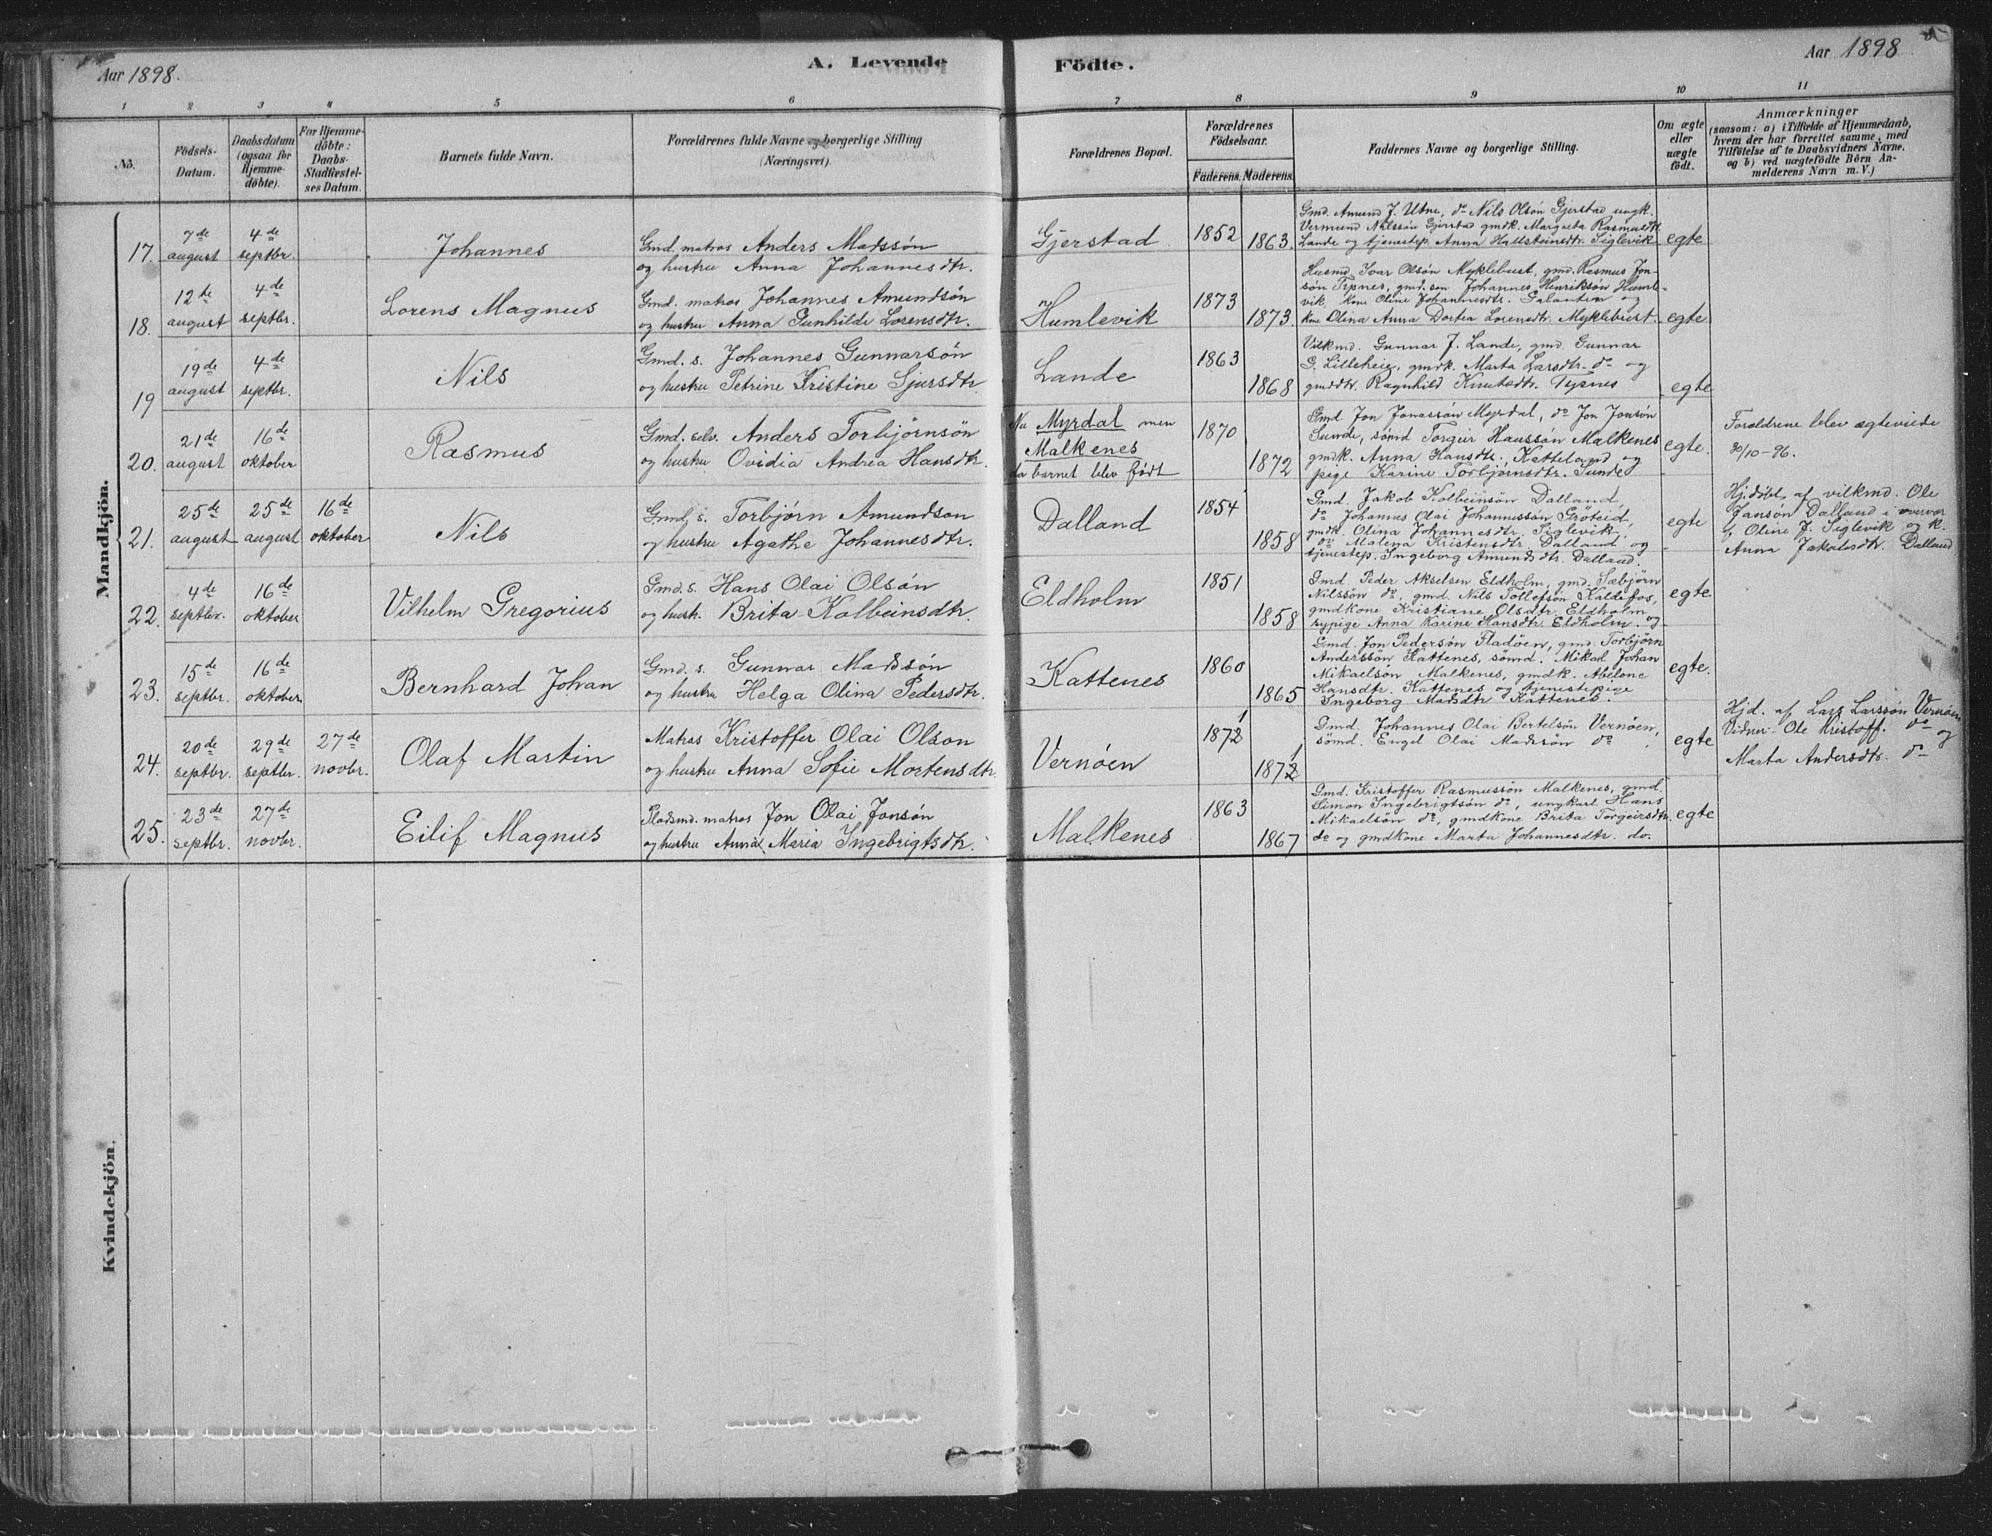 Aar 1898.
A. Levende
Födte.
Aar 1898
1 2 3 4 5 6 7 8 9 10 11
No.
Födsels-
Datum.
Daabsdatum
(ogsaa for
Hjemme-
döbte).
For Hjemme-
döbte:
Daabs-
Stadfæstel-
ses Datum.
Barnets fulde Navn.
Forældrenes fulde Navne og borgerlige Stilling
(Næringsvei).
Forældrenes Bopæl.
Forældrenes
Födselsaar.
Faderens. Moderens.
Faddernes Navne og borgerlige Stilling.
Om ægte
eller
uægte
født.
Anmærkninger
(saasom: a) i Tilfælde af Hjemmedaab,
hvem der har forrettet samme, med
Tilföielse af to Daabsvidners Navne.
og b) ved uægtefödte Börn An-
melderens Navn m. V.)
Mandkjön.
17. 7de august
4de septbr.
Johannes
Gmd. matros Anders Madssön
og hustru Anna Johannesdtr.
Gjerstad
1852
1863.
Gmd. Amund J. Utne, do Nils Olsön Gjerstad ungk.
Vermund Nilssön Gjerstad gmdk. Margreta Rasmusdtr.
Lande og tjenestep. Anna Hallsteinsdtr. Siglevik
egte
18. 12te august
4de septbr.
Lorens Magnus
Gmd. matros Johannes Amundsön
og hustru Anna Gunhilde Lorensdtr.
Humlevik
1873
1873.
Husmd. Ivar Olsön Myklebust, gmd. Rasmus Jon-
sön Tysnes, gmd. sön Johannes Henriksön Humle-
vik kone Oline Johannesdtr. Galanten og
kone Olina Anna Dortea Lorensdtr. Myklebust.
egte
19 19de august
4de septbr.
Nils
Gmd. s. Johannes Gunnarsön
og hustru Petrine Kristine Sjursdtr.
Lande
1863
1868
Vilkmd. Gunnar J. Lande, gmd. Gunnar
G. Lilleheie, gmdk. Marta Larsdtr. do og
gmddtr. Ragnhild Knutsdtr. Tysnes
egte
20. 21de august
16de oktober
Rasmus
Gmd. selv. Anders Torbjörnsön
og hustru Ovidia Andrea Hansdtr.
Nu Myrdal men
Malkenes
da barnet blev födt
1870
1872
Gmd. Jon Jonassön Myrdal, do Jon Jonsön
Sunde, sömd Torgeir Hanssön Malkenes
gmdk. Anna Hansdtr. Katteland og
pige Karine Torbjörnsdtr. Sunde
egte.
Foreldrene blev egteviede
30/10-96.
21. 25de august
25de august
16de oktober
Nils
Gmd. s. Torbjörn Amundson
og hustru Agathe Johannesdtr.
Dalland
1854
1858
Gmd. Jakob Kolbeinsön Dalland,
do Johannes Olai Johannessön Gröteid,
gmdk. Olina Johannesdtr. Siglevik,
do Malena Kristensdtr. Dalland, og
tjenestep. Ingeborg Amundsdtr. Dalland.
egte
Hj.döbt af vilkmd. Ole
Jansön Dalland i overvær
af Oline J. Siglevik og k.
Anna Jakobsdtr. Dalland
22. 4de septbr.
16de oktober
Vilhelm Gregorius
Gmd. s. Hans Olai Olsön
og hustr. Brita Kolbeinsdtr.
Eldholm
1851
1858
Gmd. Peder Akselsen Eldholm, gmd. Sæbjörn
Nilssön do, gmd. Nils Tollefsön Kallefos,
gmdkone Kristiane Olsdtr. Eldholm og
sypige Anna Karine Hansdtr. Eldholm.
egte
23. 15de septbr.
16de oktober
Bernhard Johan
Gmd. s. Gunnar Madssön
og hustru Helga Olina Pedersdtr.
Kattenes
1860
1865
Gmd. Jon Pedersön Fladöen, gmd. Torbjörn
Anderssön Kattenes, sömd. Mikal Johan
Mikaelsön Malkenes, gmdk. Abelone
Hansdtr. Kattenes og tjenestepige
Ingeborg Madsdtr. Kattenes.
egte.
24. 20de septbr.
29de septbr.
27de novbr.
Olaf Martin
Matros Kristoffer Olai Olson
og hustru Anna Sofie Mortensdtr
Vernöen
1872 1
1872 1
Gmd. Johannes Olai Bertelsön Vernöen,
sömd. Engel Olai Madssön do
egte
Hjd. af Lars Larssön Vernöen
Vidner: Ole Kristoff. do og
Marta Andersdtr. do
25. 23de septbr.
27de novbr.
Eilif Magnus
Pladsmd. matros Jon Olai Jonsön
og hustru Anna Maria Ingebrigtsdtr.
Malkenes
1863
1867
Gmd. Kristoffer Rasmussön Malkenes, gmd.
Simon Ingebrigtsön do, ungkarl Hans
Mikaelsön do, gmdkone Brita Torgeirsdtr.
do og gmdkone Marta Johannesdtr. do.
egte
Kvindekjön.